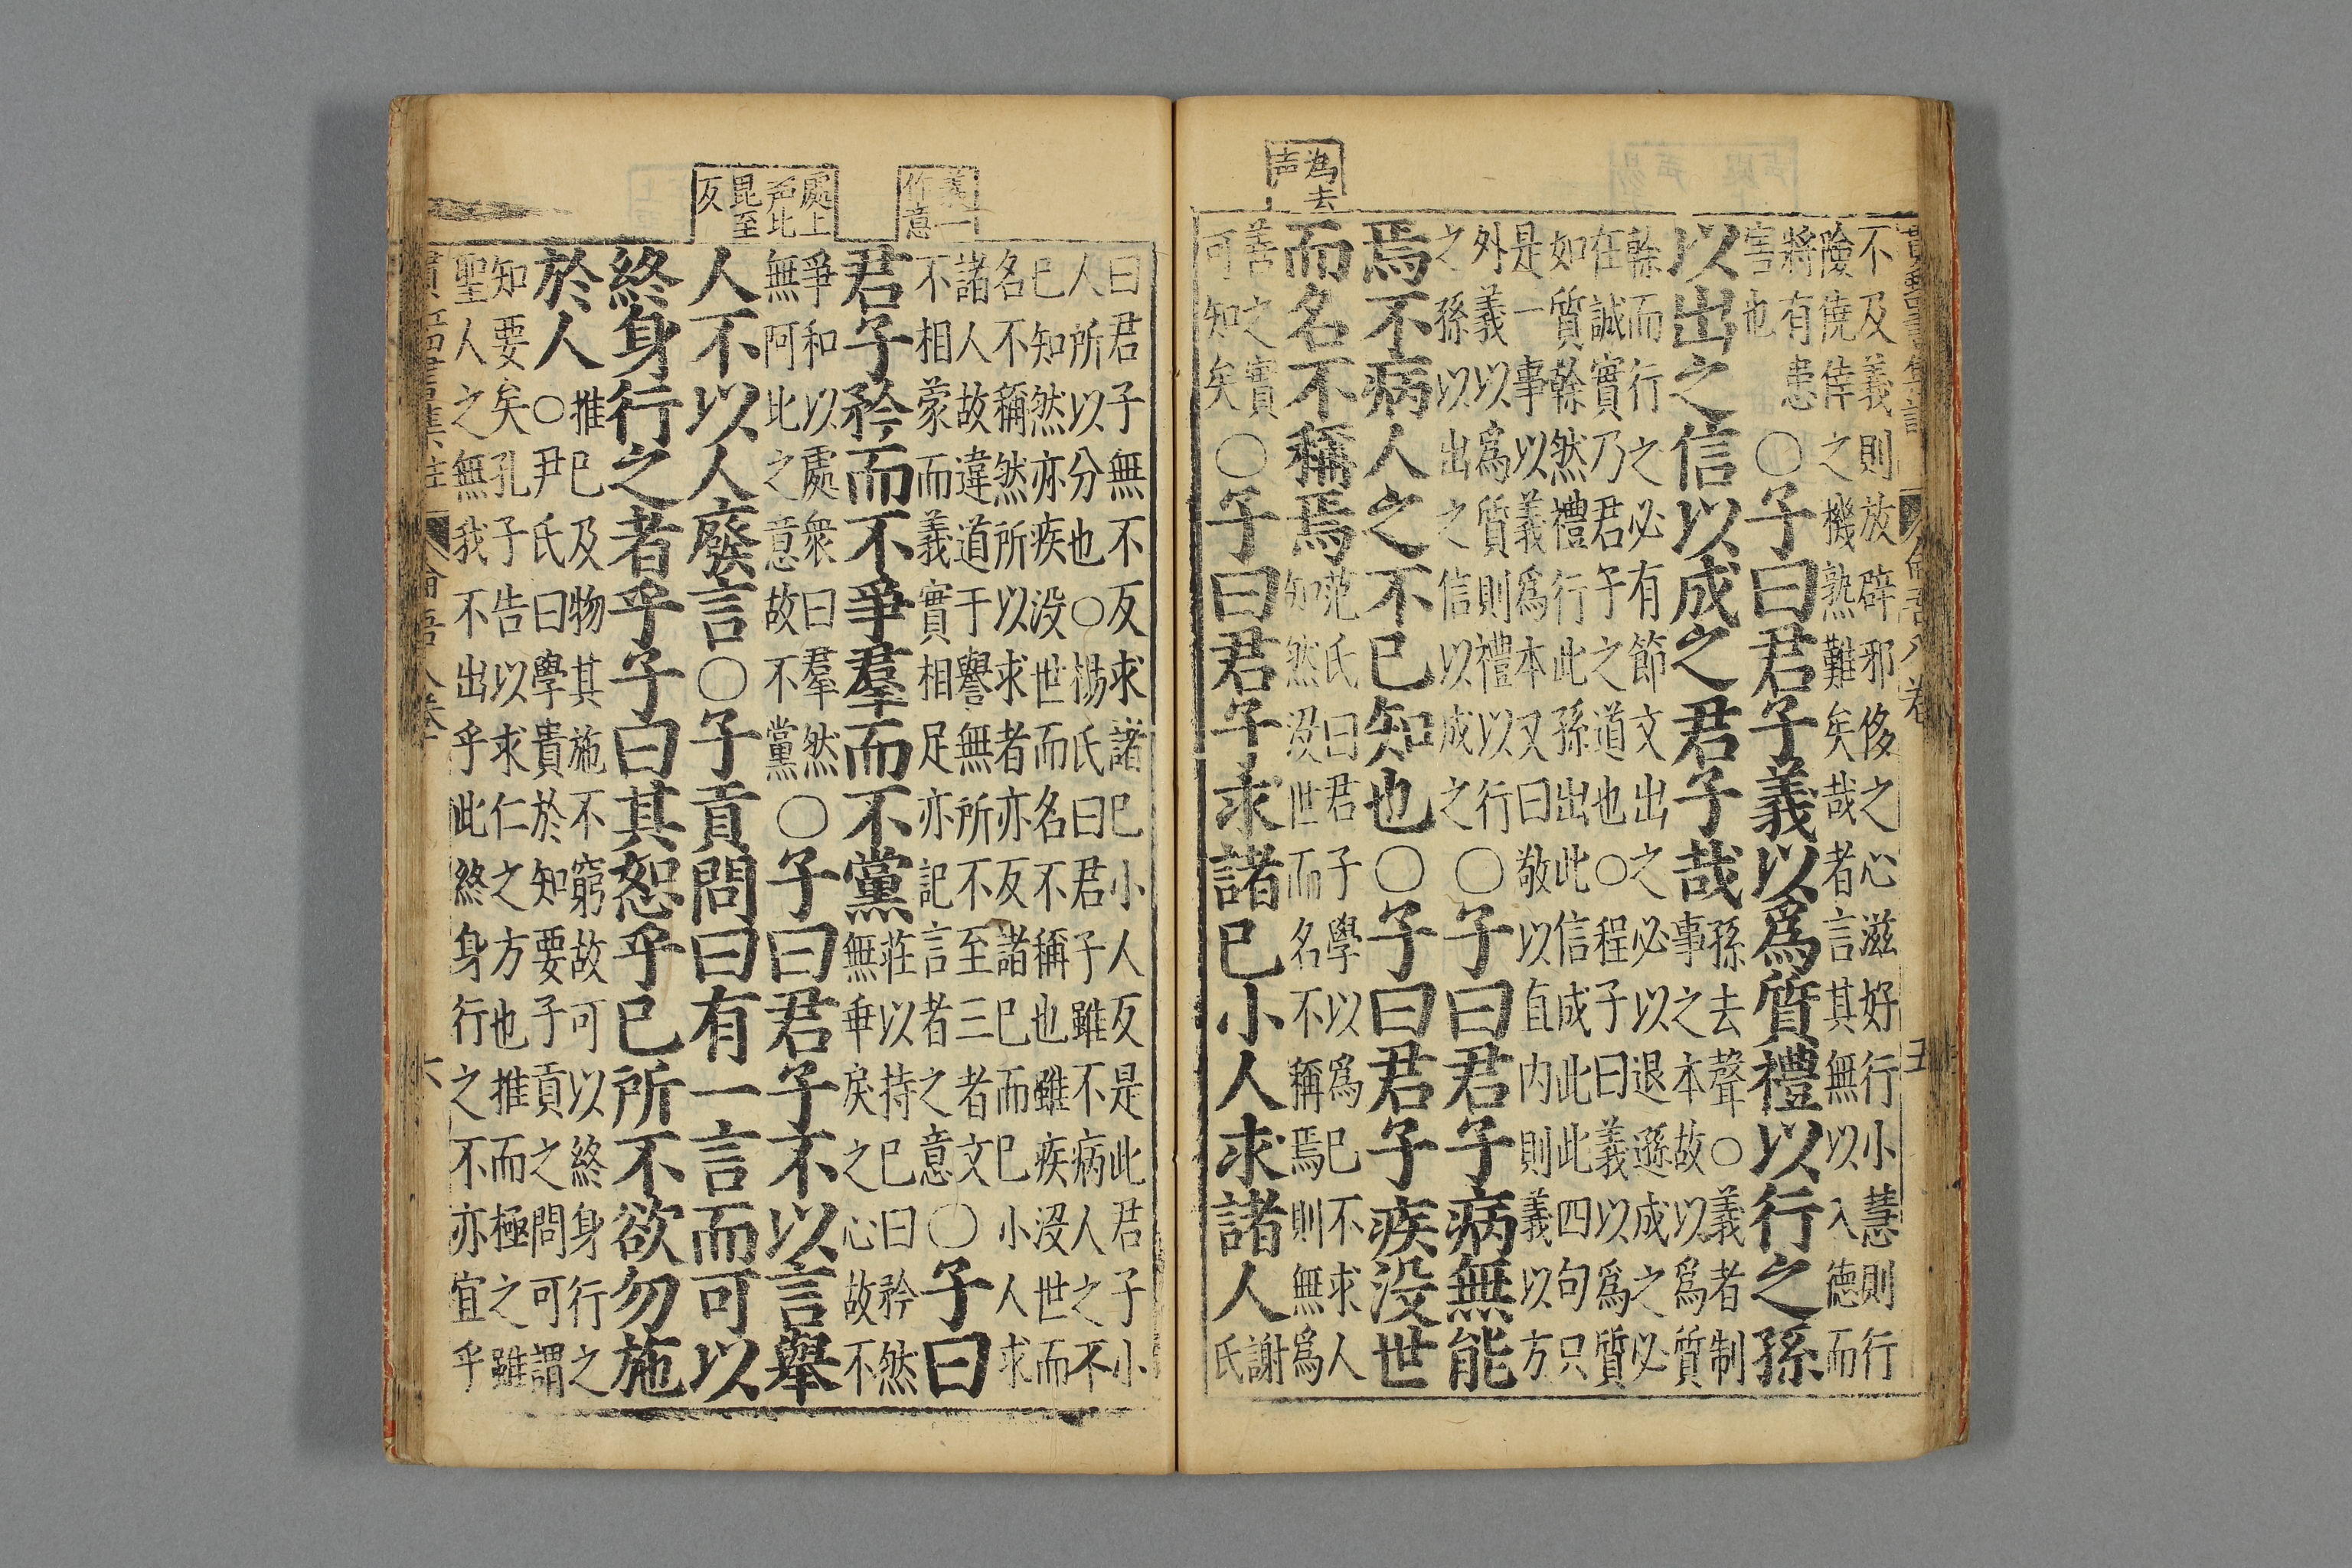 為去
声
不及義則放辟邪侈之心滋好行小慧則行
險僥倖之機熟難矣哉者言其無以入德而
將有患
害也
○子曰君子義以爲質禮以行之孫
以出之信以成之君子哉
孫去聲○義者制
事之本故以爲質
餘而行之必有節文出之必以退遜成之必
在誠實乃君子之道也○程子曰義以爲質
如質餘然禮行此孫出此信成此此四句只
是一事以義爲本又曰敬以直内則義以方
外義以爲質則禮以行
之孫以出之信以成之
○子曰君子病無能
焉不病人之不已知也○子曰君子疾没世
而名不稱焉
范氏曰君子學以爲已不求人
知然没世而名不稱焉則無爲
善之實
可知矣
○子曰君子求諸已小人求諸人
謝
氏
義一
作意
處上
声比
毘至
反
曰君子無不反求諸已小人反是此君子小
人所以分也○楊氏曰君子雖不病人之不
已知然亦疾没世而名不稱也雖疾没世而
名不稱然所以求者亦反諸已而已小人求
諸人故違道于譽無所不至三者文
不相蒙而義實相足亦記言者之意
○子曰
君子矜而不爭羣而不黨
莊以持已曰矜然
無乖戾之心故不
爭和以處衆曰羣然
無阿比之意故不黨
○子曰君子不以言舉
人不以人廢言○子貢問曰有一言而可以
終身行之者乎子曰其恕乎已所不欲勿施
於人
推已及物其施不窮故可以終身行之
○尹氏曰學貴於知要子貢之問可謂
知要矣孔子告以求仁之方也推而極之雖
聖人之無我不出乎此終身行之不亦宜乎